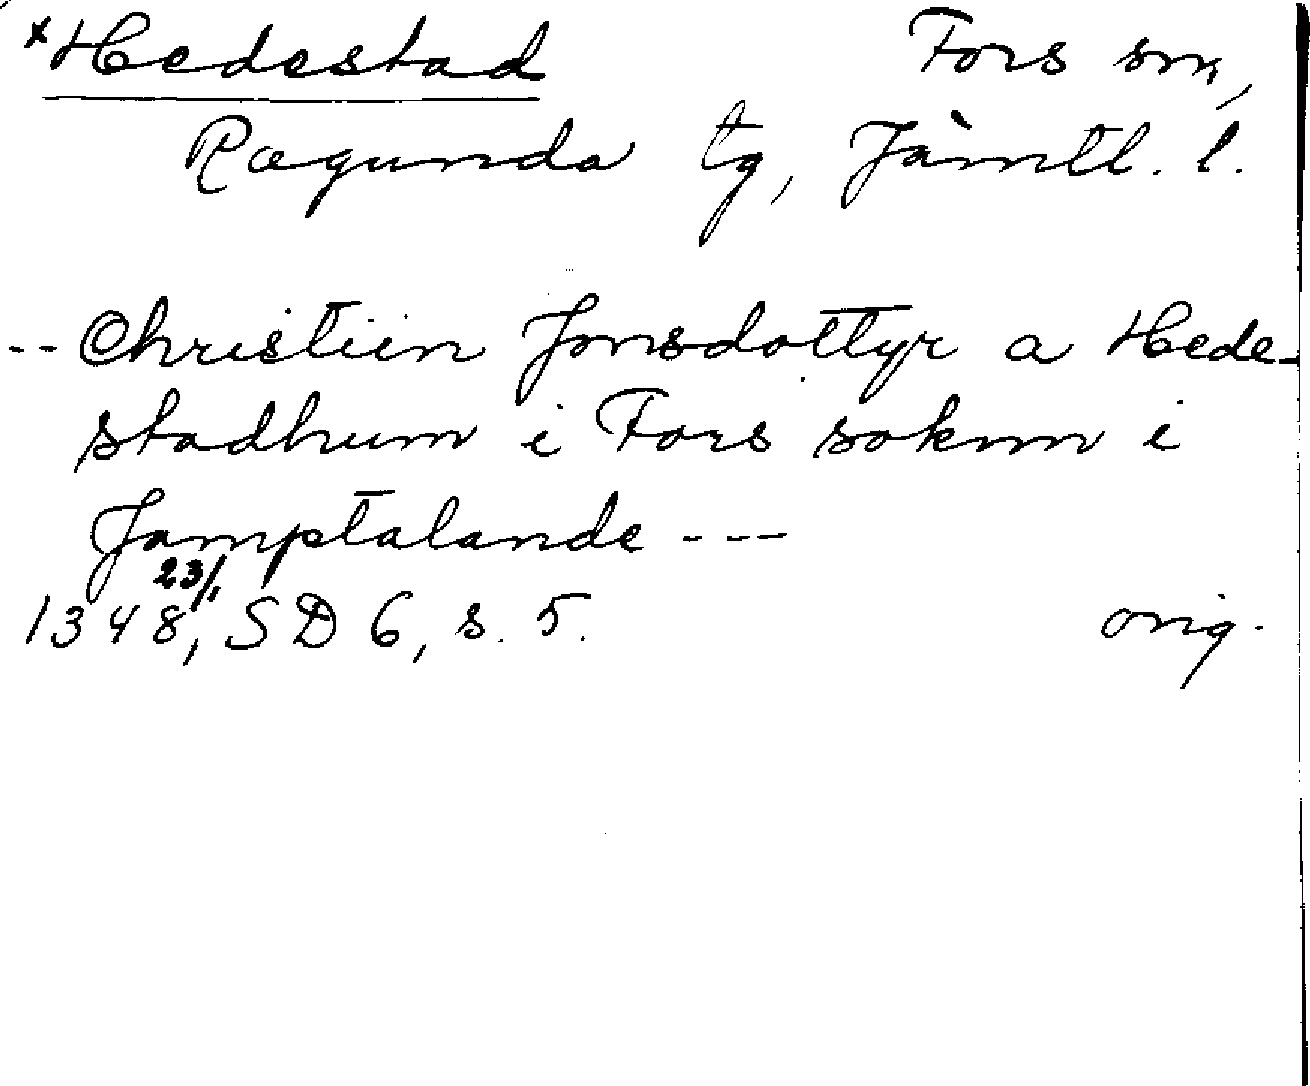 ×Hedestad Fors sn,
Ragunda tg, Jämtl. l.
-- Christiin Jonsdottyr a Hede-
stadhum i Fors soknn i
Jamptalande ---
1348 23/1, SD 6, s. 5. orig.